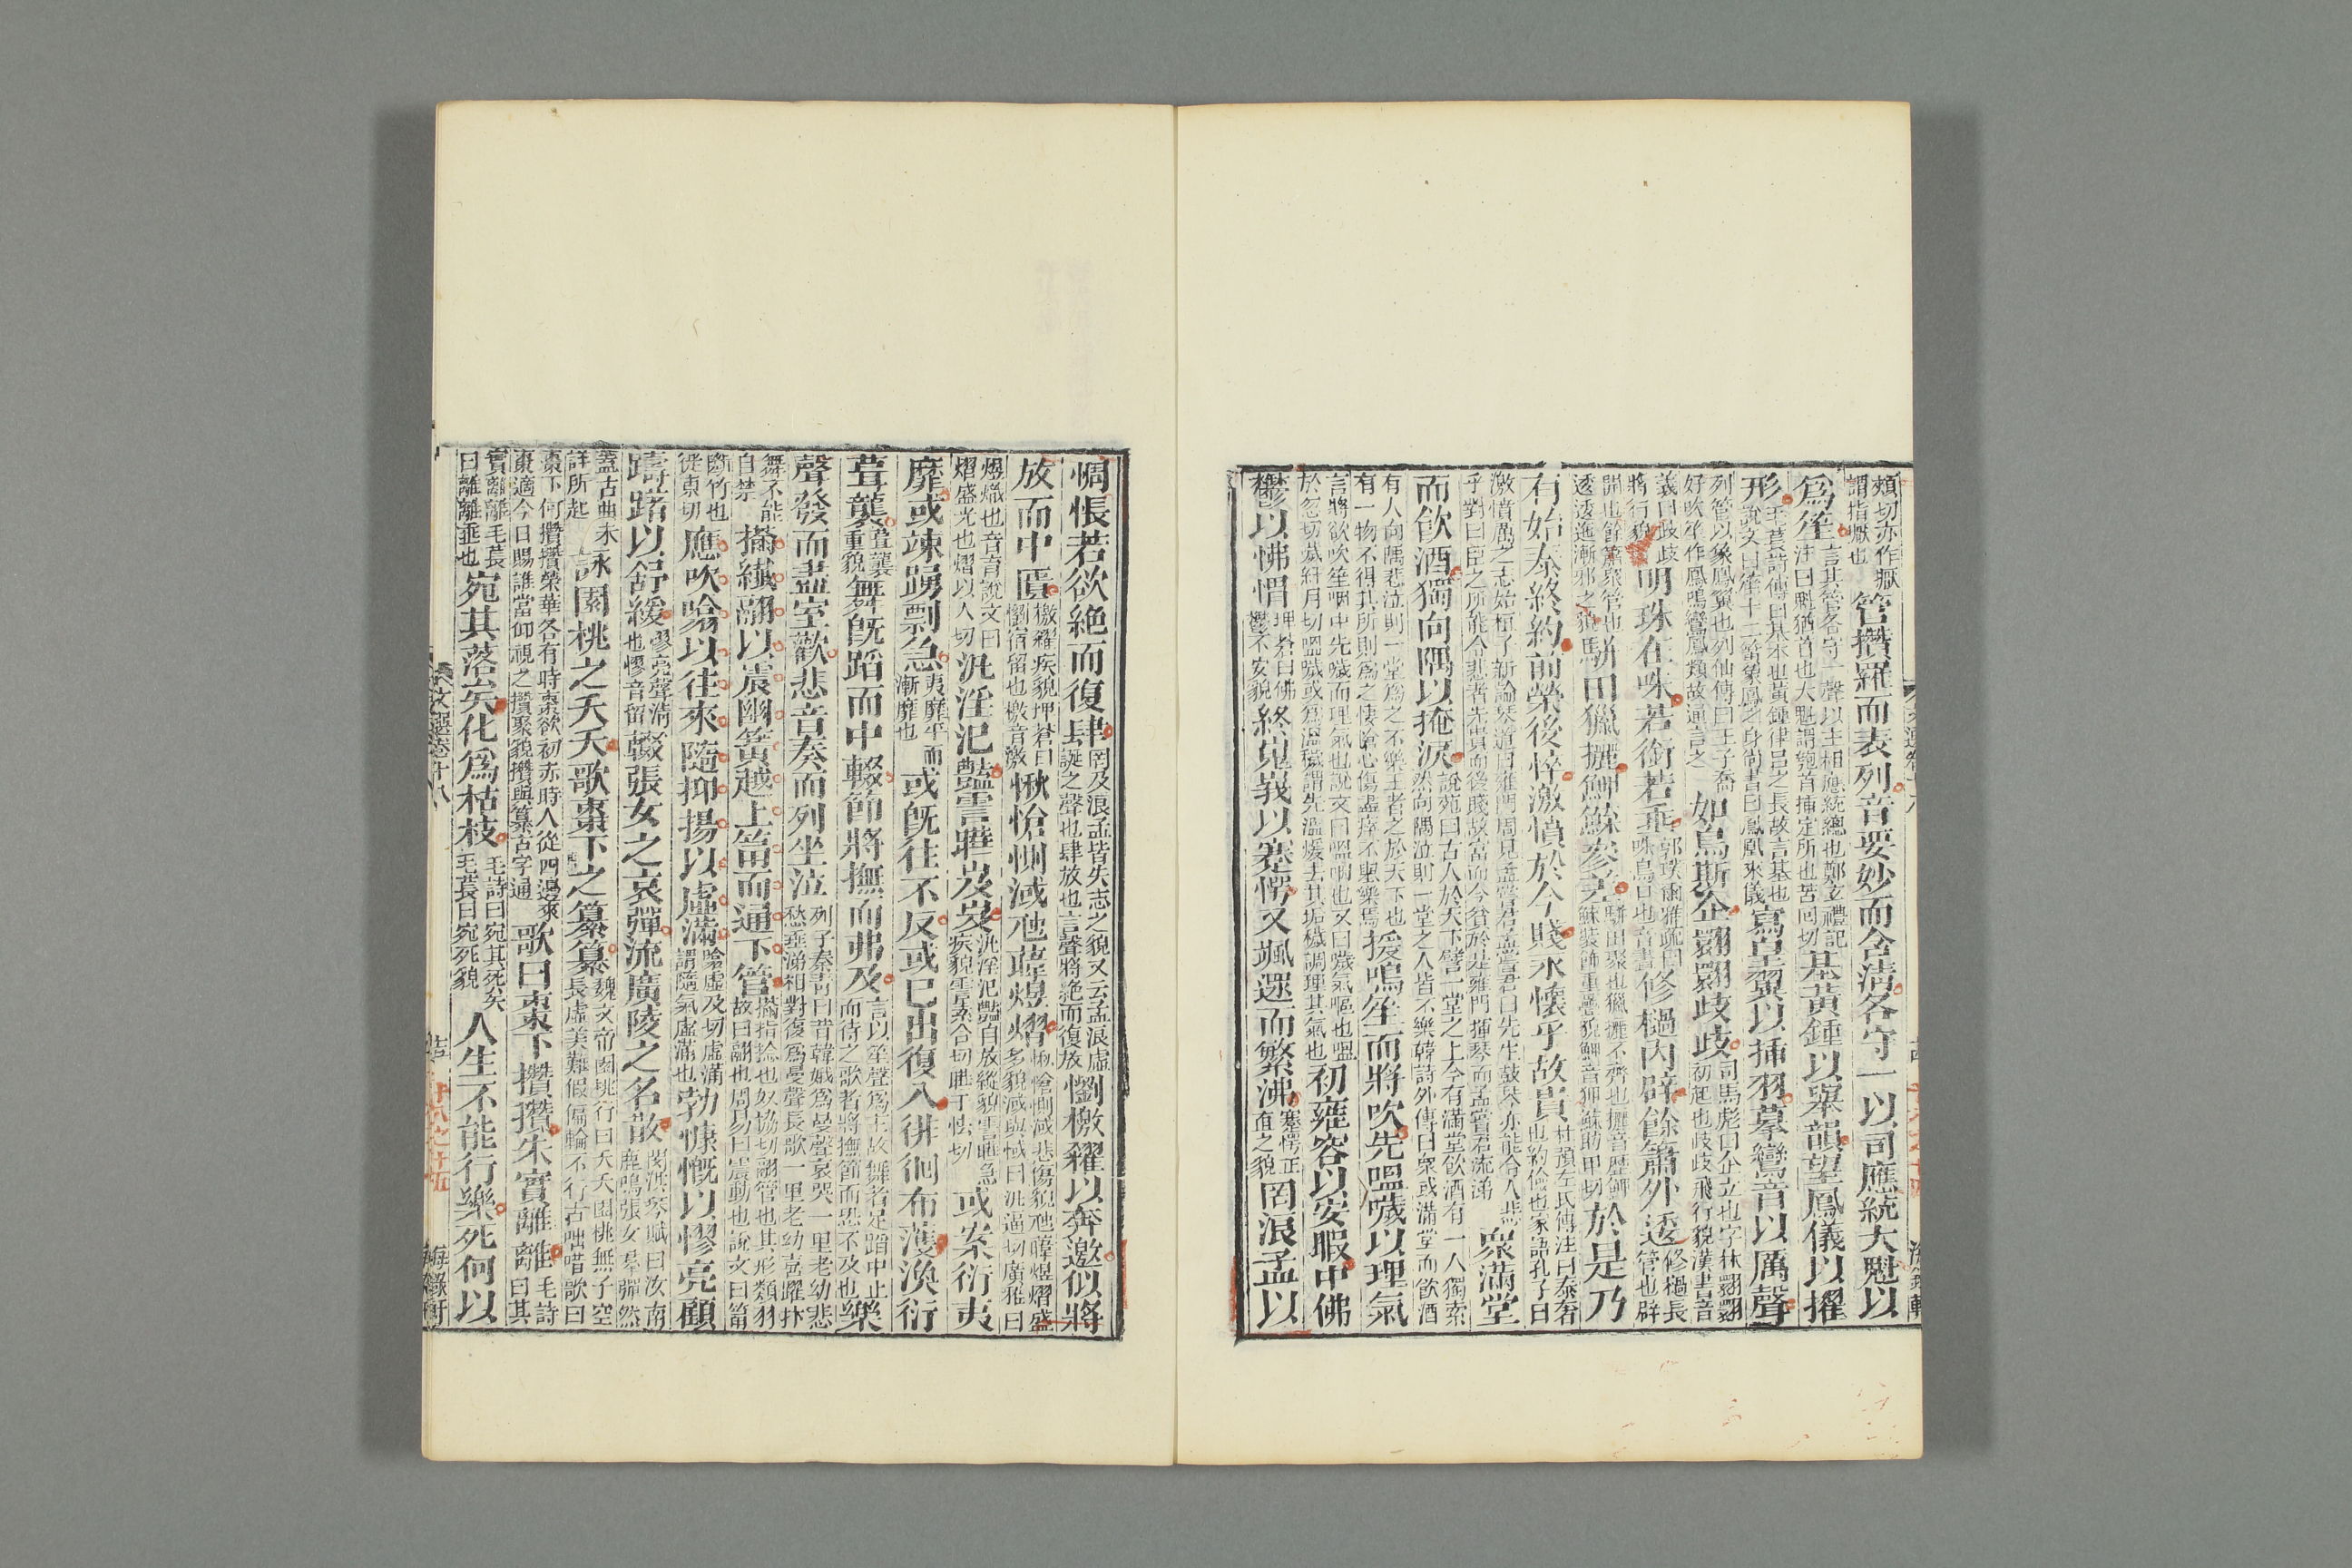 頰切亦作擫
謂指擫也
管攢羅而表列音要妙而含清各守一以司應統大魁以
爲笙
言其管各守一聲以主相應統總也鄭玄禮記
注曰魁猶首也大魁謂匏首插定所也苦回切
基黃鍾以舉韻望鳳儀以擢
形
毛萇詩傳曰基本也黃鍾律呂之長故言基也
說文曰笙十三簧象鳳之身尚書曰鳳凰來儀
寫皇翼以插羽摹鸞音以厲聲
列管以象鳳翼也列仙傳曰王子喬
好吹笙作鳳鳴鸞鳳類故通言之
如鳥斯企翾翾歧歧
司馬彪曰企立也字林翾翾
初起也歧歧飛行貌漢書音
義曰歧歧
將行貌
明珠在咮若銜若垂
郭璞爾雅疏曰
咮鳥口也音晝
修檛內辟餘簫外逶
修檛長
管也辟
開也餘簫衆管也
逶逶迤漸邪之貌
駢田獵攦鰗鰈參差
駢田聚也獵攦不齊也攦音歷
於是乃
有始泰終約前榮後悴激憤於今賤永懷乎故貴
杜預左氏傳注曰泰奢
也約儉也家語孔子曰
激憤厲之志始桓子新論琴道曰雍門周見孟嘗君孟嘗君曰先生鼓琴亦能令人悲
乎對曰臣之所能令悲者先貴而後賤故富而今貧於是雍門揮琴而孟嘗君流涕
衆滿堂
而飮酒獨向隅以掩淚
說苑曰古人於天下譬一堂之上今有滿堂飮酒有一人獨索
然向隅泣則一堂之人皆不樂韓詩外傳曰衆或滿堂而飮酒
有人向隅悲泣則一堂爲之不樂王者之於天下也
有一物不得其所則爲之悽愴心傷盡瘁不懸樂焉
援鳴笙而將吹先嗢噦以理氣
言將欲吹笙咽中先噦而理氣也說文曰嗢咽也又曰噦氣啒也嗢
於忽切噦紆月切嗢噦或爲溫穢謂先溫煖去其垢穢調理其氣也
初雍容以安暇中佛
鬱以怫㥜
埤蒼曰佛
鬱不安貌
終嵬峩以蹇愕又颯遝而繁沸
蹇愕正
直之貌
罔浪孟以
惆悵若欲絶而復肆
罔及浪孟皆失志之貌又云孟浪虛
誕之聲也肆放也言聲將絶而復放
懰檄糴以奔邀似將
放而中匱
檄糴疾貌埤蒼曰
懰宿留也檄音激
愀愴惻淢虺韡煜熠
愀愴惻淢悲傷貌虺韡煜熠盛
多貌淢與惐曰汎逼切廣雅曰
煜熾也音育說文曰
熠盛光也熠以入切
汎淫氾豔霅曄岌岌
汎淫氾豔自放縱貌霅曄急
疾貌霅素合切曄于怯切
或案衍夷
靡或竦踴剽急
夷靡平而
漸靡也
或旣往不反或已出復入徘徊布濩渙衍
葺襲
葺襲
重貌
舞旣蹈而中輟節將撫而弗及
言以笙聲爲主故舞者足蹈中止
而待之歌者將撫節而恐不及也
樂
聲發而盡室歡悲音奏而列坐泣
列子秦青曰昔韓娥爲曼聲哀哭一里老幼悲
愁垂涕相對復爲曼聲長歌一里老幼喜躍抃
舞不能
自禁
擫纖翮以震幽簧越上筩而通下管
擫指捻也奴協切翮管也其形類羽
故曰翮也周易曰震動也說文曰筩
斷竹也
徒東切
應吹噏以往來隨抑揚以虛滿
噏虛及切虛滿
謂隨氣虛滿也
勃慷慨以憀亮顧
躊躇以舒緩
憀亮聲清
也憀音留
輟張女之哀彈流廣陵之名散
閔洪琴賦曰汝南
鹿鳴張女羣彈然
蓋古曲未
詳所起
詠園桃之夭夭歌棗下之纂纂
魏文帝園桃行曰夭夭園桃無子空
長虛美難假偏輪不行古咄唶歌曰
棗下何攢攢榮華各有時棗欲初赤時人從四邊來
棗適今日賜誰當仰視之攢聚貌攢與纂古字通
歌曰棗下攢攢朱實離離
毛詩
曰其
實離離毛萇
曰離離垂也
宛其落矣化爲枯枝
毛詩曰宛其死矣
毛萇曰宛死貌
人生不能行樂死何以
文選卷十八
海錄軒